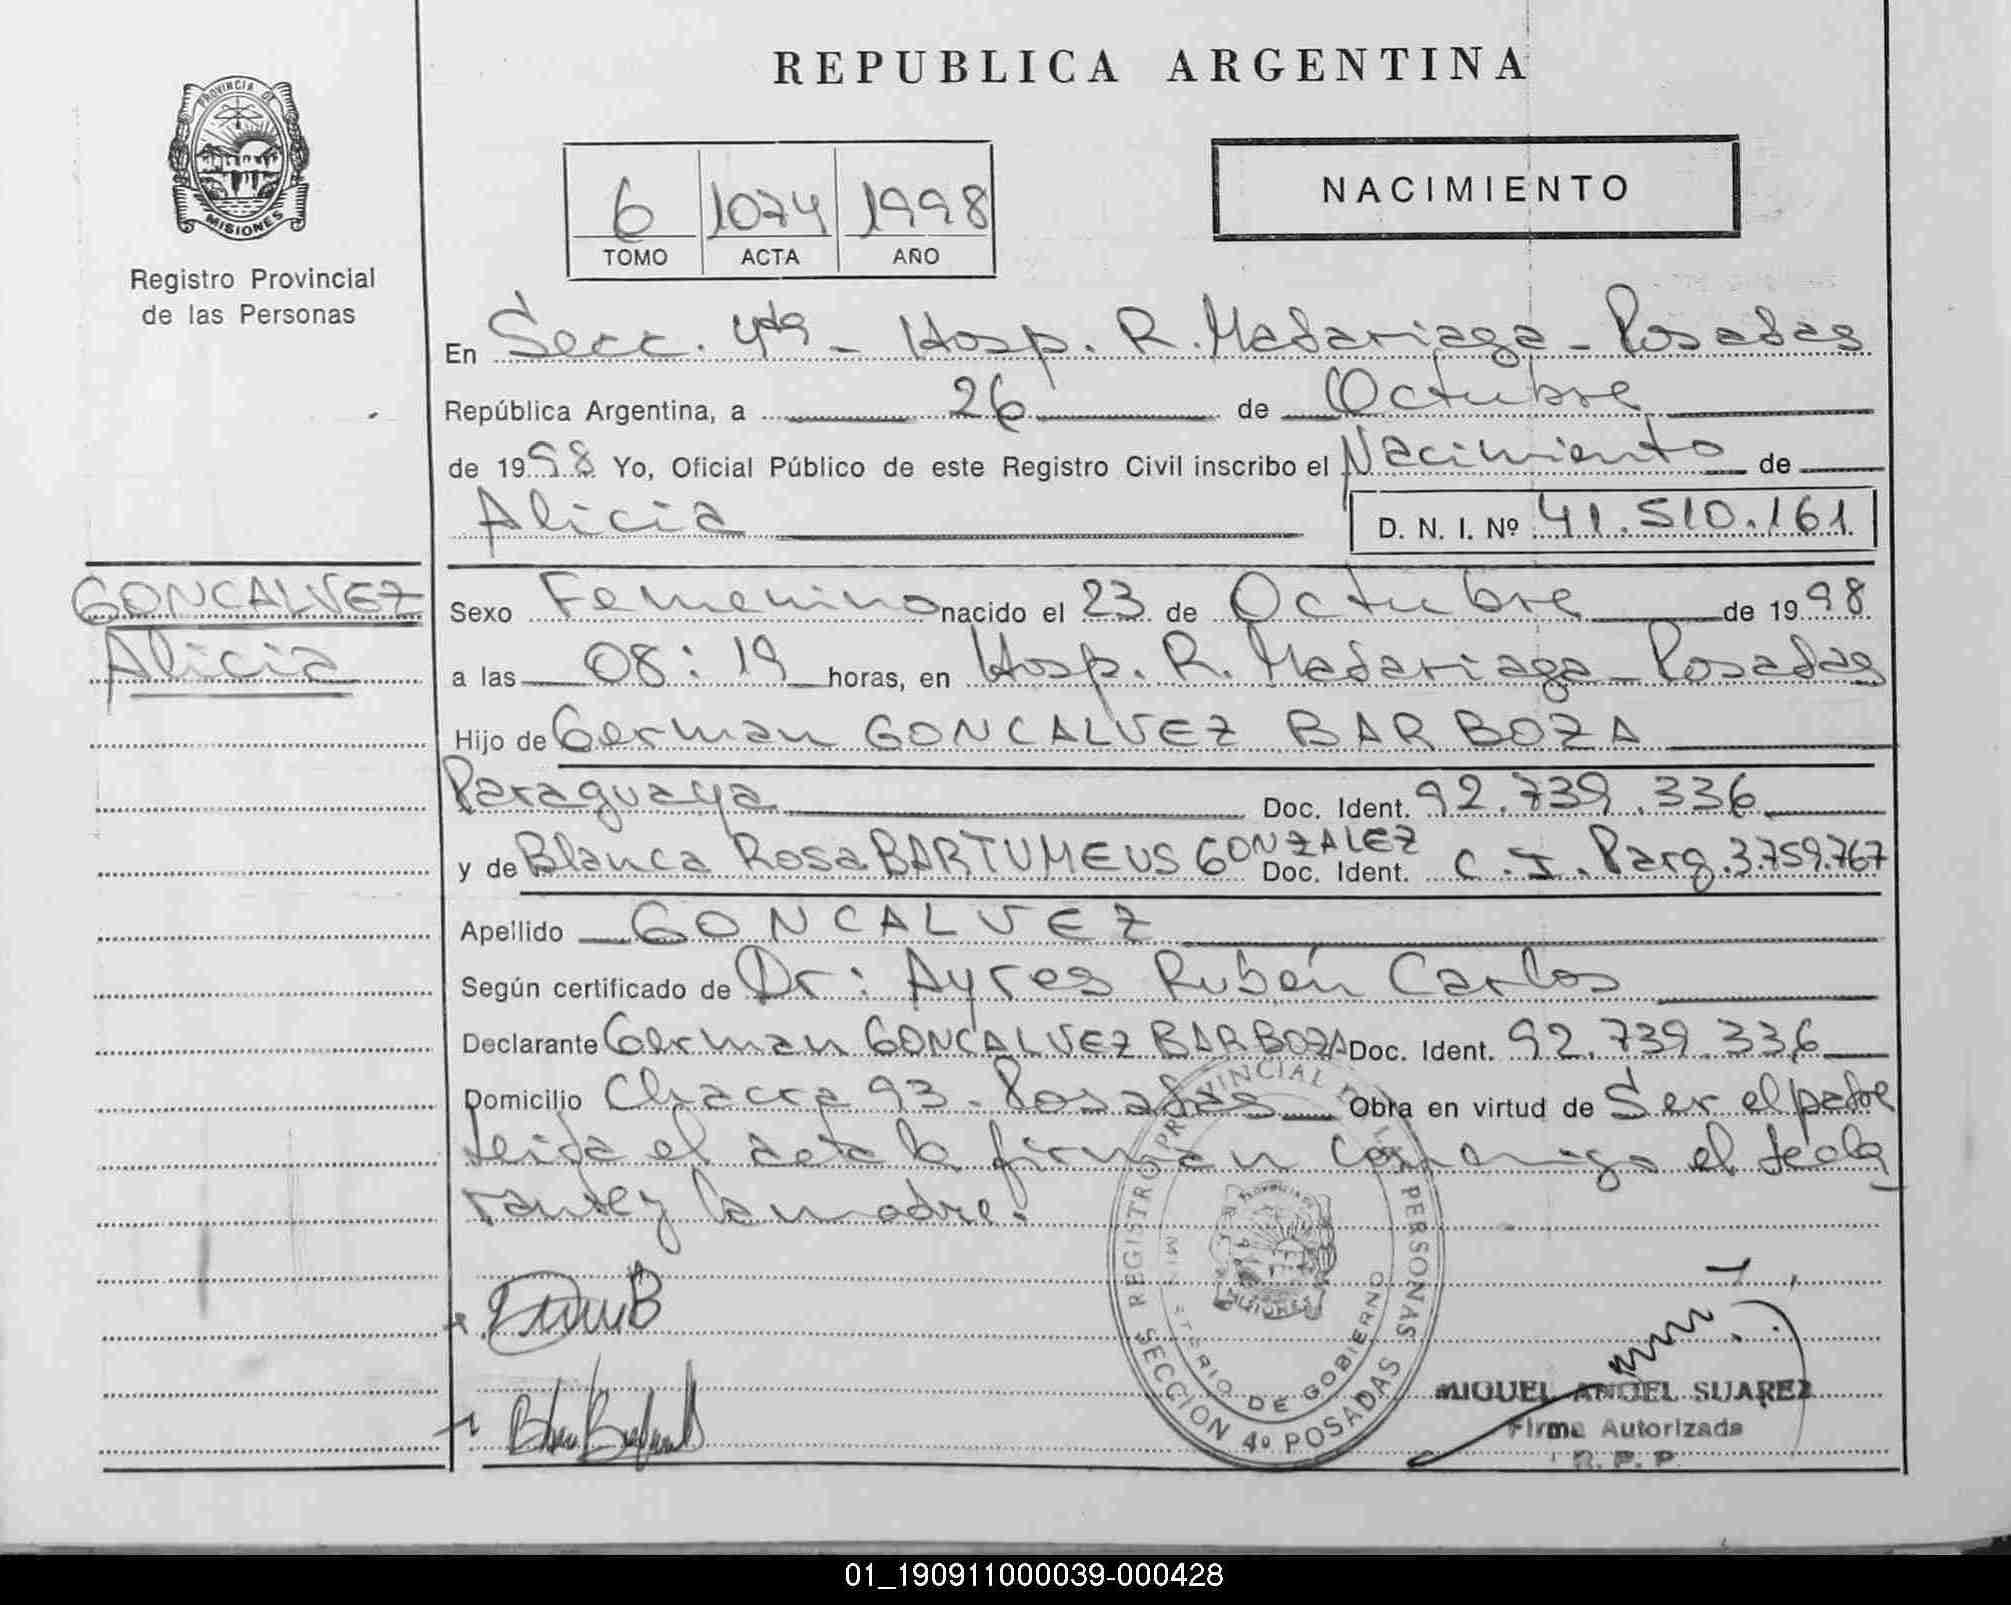 REPUBLICA ARGENTINA
PROVINCIA DE
MISIONES
Registro Provincial
de las Personas
6 1074 1998
TOMO ACTA AÑO
NACIMIENTO
En Secc. 4ta - Hosp. R. Madariaga - Posadas
República Argentina, a 26 de Octubre
de 1998 Yo, Oficial Público de este Registro Civil inscribo el Nacimiento de
Alicia D. N. I. Nº 41.510.161
GONCALVEZ
Alicia
Sexo Femenino nacido el 23 de Octubre de 1998
a las 08:19 horas, en Hosp. R. Madariaga - Posadas
Hijo de German GONCALVEZ BARBOZA
Paraguaya Doc. Ident. 92.739.336
y de Blanca Rosa BARTUMEUS GONZALEZ Doc. Ident. C.I. Parg. 3.759.767
Apellido GONCALVEZ
Según certificado de Dr: Ayres Rubén Carlos
Declarante German GONCALVEZ BARBOZA Doc. Ident. 92.739.336
Domicilio Chacra 93 - Posadas Obra en virtud de Ser el padre
leida el acta la firman conmigo el decla
rante y la madre.
REGISTRO PROVINCIAL DE LAS PERSONAS
MINISTERIO DE GOBIERNO
MISIONES
SECCION 4º POSADAS
MIGUEL ANGEL SUAREZ
Firma Autorizada
R. P. P.
01_190911000039-000428